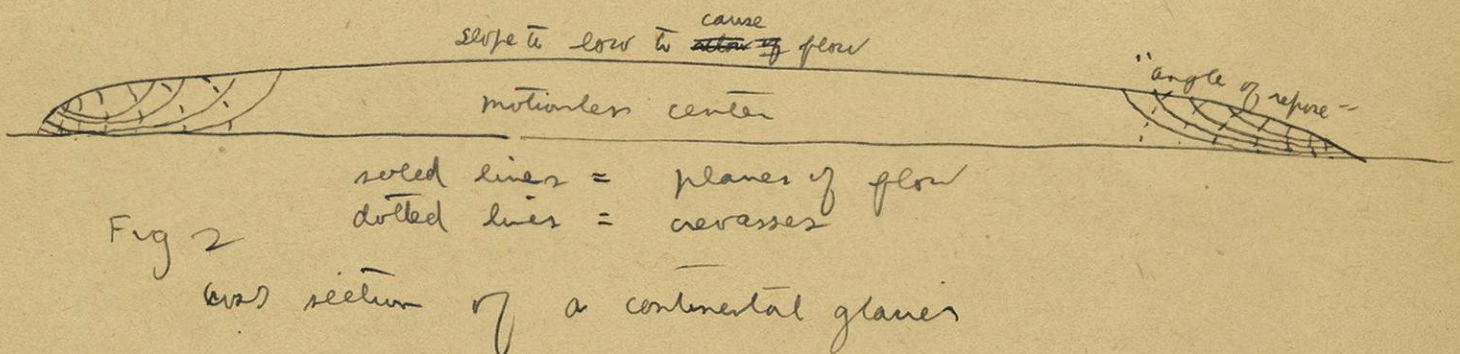 cause
slope to low to allow of flow
"angle of repose"
motionless center
soled lines = planes of flow
dotted lines = crevasses
Fig 2
cross section of a continental glacier